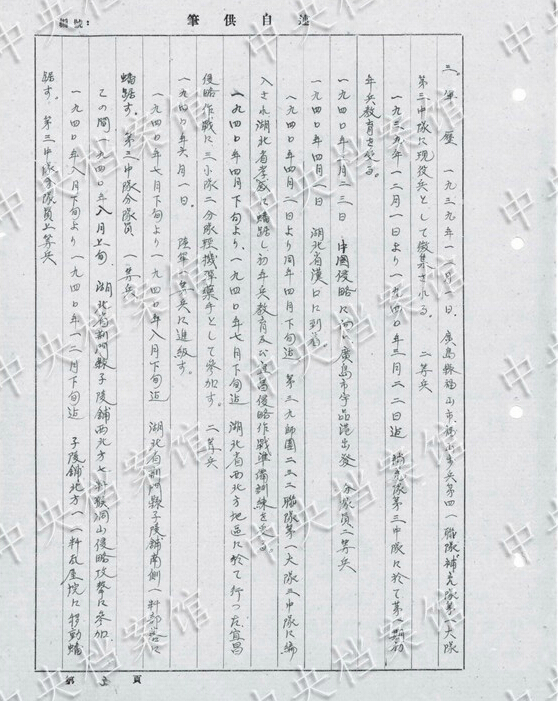 述自供筆
編號:
三。軍歴 一九三九年一二月一日、廣島縣福山市、福山歩兵第四一聯隊補充隊第一大隊
第三中隊に現役兵として徴集される。 二等兵
一九三九年一二月一日より一九四〇年三月二二日迄 補充隊第三中隊に於て第一期初
年兵教育を受る。
一九四〇年三月二三日 中國侵略に向い廣島市宇品港出發 分隊員二等兵
一九四〇年四月一日 湖北省漢口に到着
一九四〇年四月二日より同年四月下旬迄 第三九師團二三二聯隊第一大隊三中隊に編
入され湖北省孝感に蟠踞し初年兵教育及び宜昌侵略作戰準備訓練を受る。
一九四〇年四月下旬より、一九四〇年七月下旬迄 湖北省西北方地區に於て行つた宜昌
侵略作戰に三小隊二分隊輕機彈藥手として參加す。 二等兵
一九四〇年六月一日。 陸軍一等兵に進級す。
一九四〇年七月下旬より一九四〇年八月下旬迄 湖北省荊門縣子陵鋪南側一粁部落に
蟠踞す。 第三中隊分隊員 一等兵
この間一九四〇年八月上旬、湖北省荊門縣子陵鋪西北方七粁猴洞山侵略攻撃に參加、
一九四〇年八月下旬より一九四〇年一二月下旬迄 子陵鋪北方一一粁瓦屋垸に移動蟠
踞す。 第三中隊分隊員上等兵
第 頁
中央档案馆